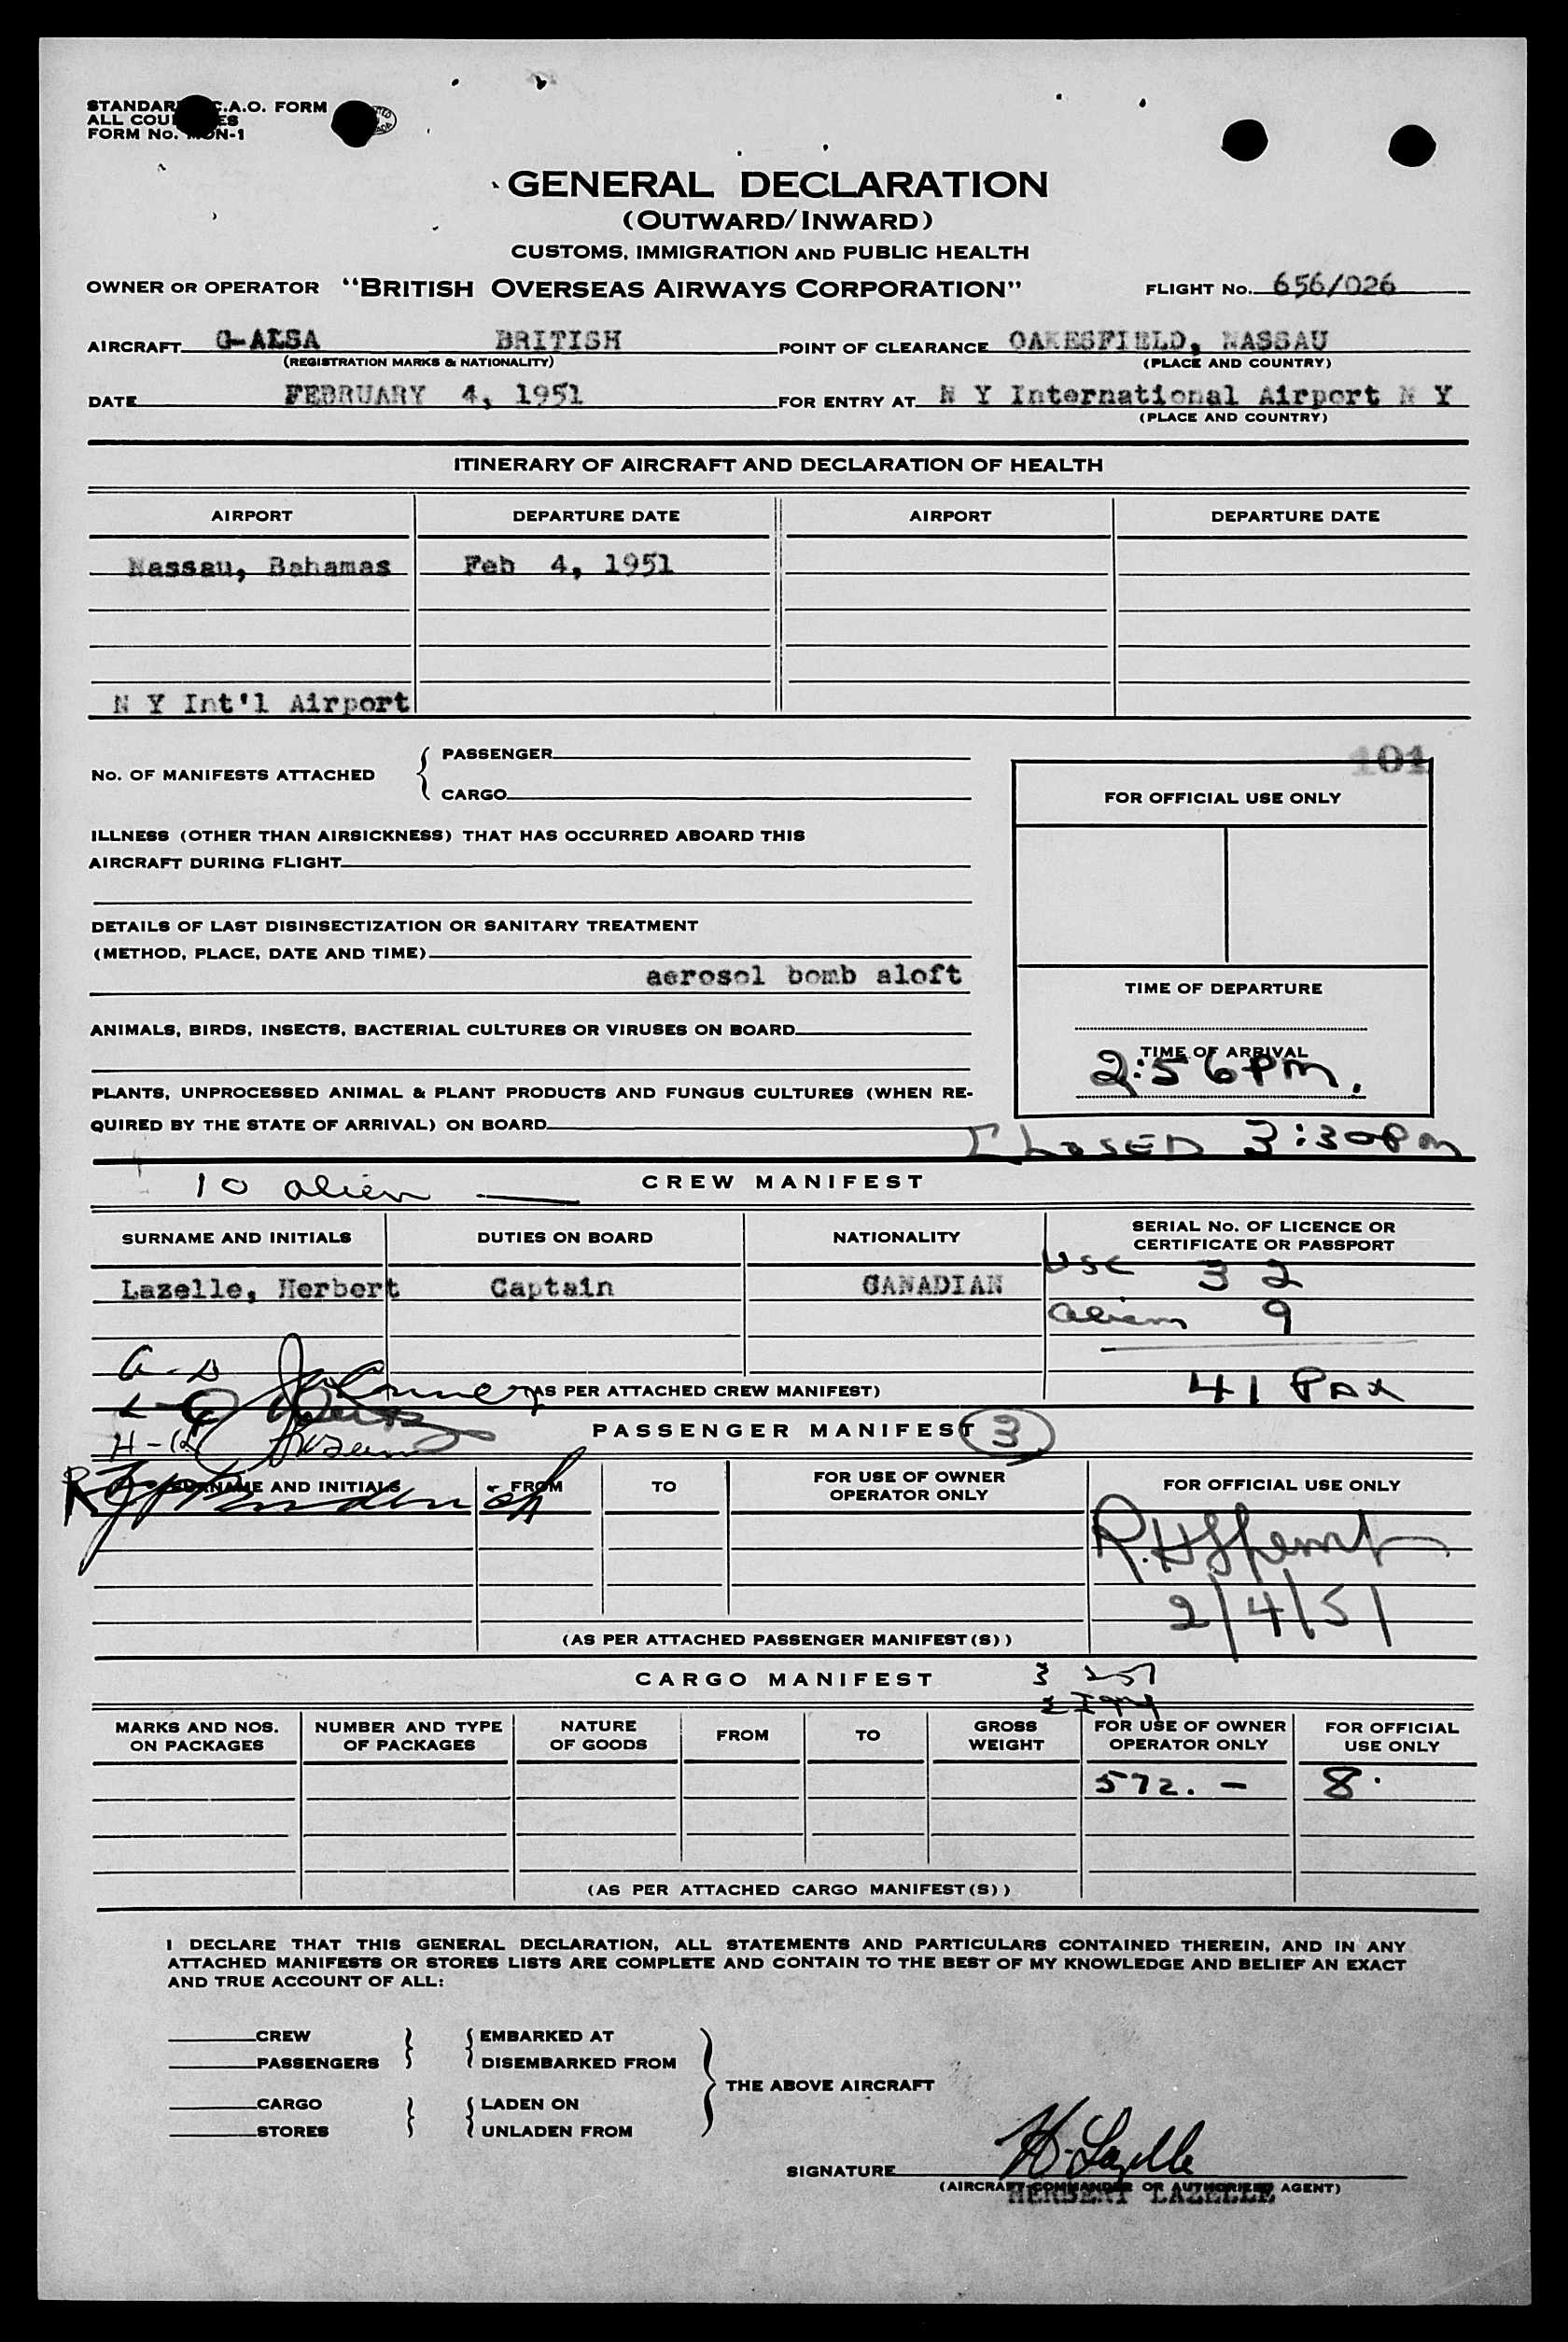 STANDARD I.C.A.O. FORM
ALL COUNTRIES
FORM No. MON-1
GENERAL DECLARATION
(OUTWARD/INWARD)
CUSTOMS, IMMIGRATION AND PUBLIC HEALTH
OWNER OR OPERATOR "BRITISH OVERSEAS AIRWAYS CORPORATION" FLIGHT No. 656/026
AIRCRAFT G-ALSA BRITISH POINT OF CLEARANCE OAKESFIELD, NASSAU
(REGISTRATION MARKS & NATIONALITY) (PLACE AND COUNTRY)
DATE FEBRUARY 4, 1951 FOR ENTRY AT N Y International Airport N Y
(PLACE AND COUNTRY)
ITINERARY OF AIRCRAFT AND DECLARATION OF HEALTH
AIRPORT DEPARTURE DATE AIRPORT DEPARTURE DATE
Nassau, Bahamas Feb 4, 1951
N Y Int'l Airport
101
No. OF MANIFESTS ATTACHED { PASSENGER
CARGO
FOR OFFICIAL USE ONLY
ILLNESS (OTHER THAN AIRSICKNESS) THAT HAS OCCURRED ABOARD THIS
AIRCRAFT DURING FLIGHT
DETAILS OF LAST DISINSECTIZATION OR SANITARY TREATMENT
(METHOD, PLACE, DATE AND TIME)
aerosol bomb aloft
TIME OF DEPARTURE
ANIMALS, BIRDS, INSECTS, BACTERIAL CULTURES OR VIRUSES ON BOARD
TIME OF ARRIVAL
2:56 PM.
PLANTS, UNPROCESSED ANIMAL & PLANT PRODUCTS AND FUNGUS CULTURES (WHEN RE-
QUIRED BY THE STATE OF ARRIVAL) ON BOARD
CLOSED 3:30 PM
10 alien CREW MANIFEST
SURNAME AND INITIALS DUTIES ON BOARD NATIONALITY SERIAL No. OF LICENCE OR
CERTIFICATE OR PASSPORT
USC 32
Lazelle, Herbert Captain CANADIAN
alien 9
(AS PER ATTACHED CREW MANIFEST) 41 PAX
PASSENGER MANIFEST 3
SURNAME AND INITIALS FROM TO FOR USE OF OWNER
OPERATOR ONLY FOR OFFICIAL USE ONLY
2/4/51
(AS PER ATTACHED PASSENGER MANIFEST(S))
CARGO MANIFEST
MARKS AND NOS.
ON PACKAGES NUMBER AND TYPE
OF PACKAGES NATURE
OF GOODS FROM TO GROSS
WEIGHT FOR USE OF OWNER
OPERATOR ONLY FOR OFFICIAL
USE ONLY
572. — 8.
(AS PER ATTACHED CARGO MANIFEST(S))
I DECLARE THAT THIS GENERAL DECLARATION, ALL STATEMENTS AND PARTICULARS CONTAINED THEREIN, AND IN ANY
ATTACHED MANIFESTS OR STORES LISTS ARE COMPLETE AND CONTAIN TO THE BEST OF MY KNOWLEDGE AND BELIEF AN EXACT
AND TRUE ACCOUNT OF ALL:
CREW EMBARKED AT
PASSENGERS DISEMBARKED FROM
THE ABOVE AIRCRAFT
CARGO LADEN ON
STORES UNLADEN FROM
SIGNATURE H. Lazelle
(AIRCRAFT COMMANDER OR AUTHORIZED AGENT)
HERBERT LAZELLE